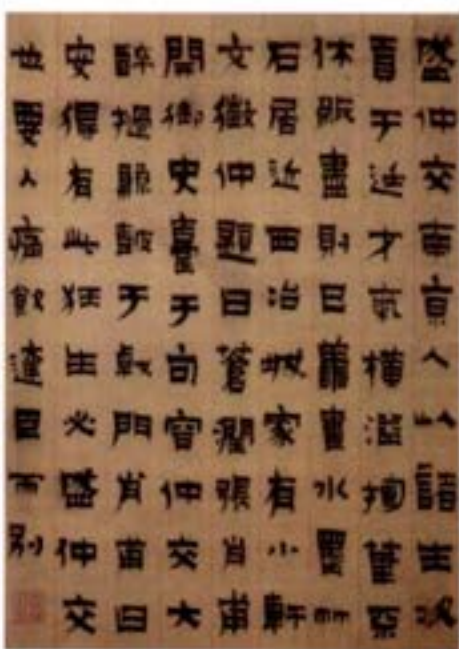 盛仲交南京人以諸生次
貢于廷才氣橫溢揮筆不
休紙盡則已善畫水墨竹
石居近西冶城家有小軒
文徵仲題曰蒼潤張肖甫
開御史臺于句容仲交大
醉撾鼓于轅門肖甫曰
安得有此狂生必盛仲交
也要入痛飲達旦而別